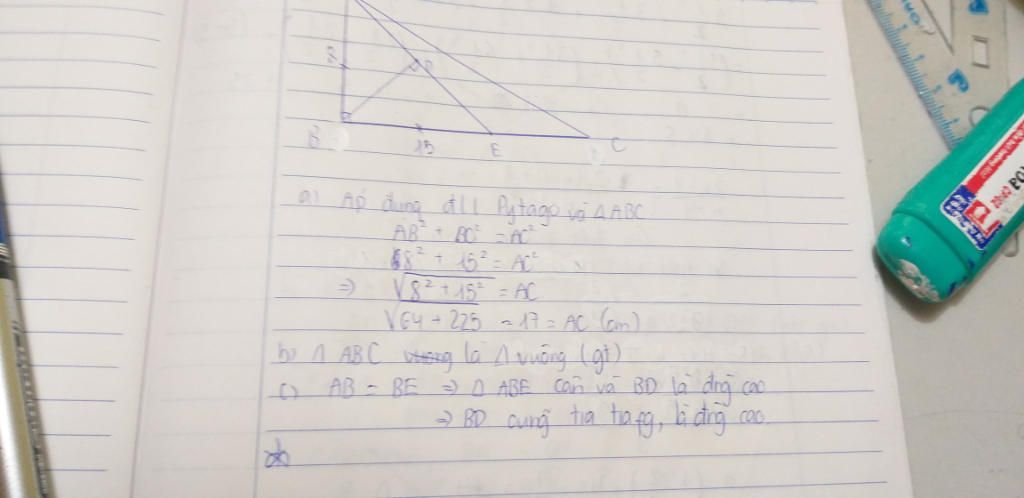 8
D
B
15
E
C
a) Áp dụng đll Pytago và ΔABC
AB² + BC² = AC²
8² + 15² = AC²
=> √8² + 15² = AC
√64 + 225 = 17 = AC (cm)
b) Δ ABC vuông là Δ vuông (gt)
c) AB = BE => Δ ABE cân và BD là đng cao
=> BD cung tia tia fg, là đng cao.